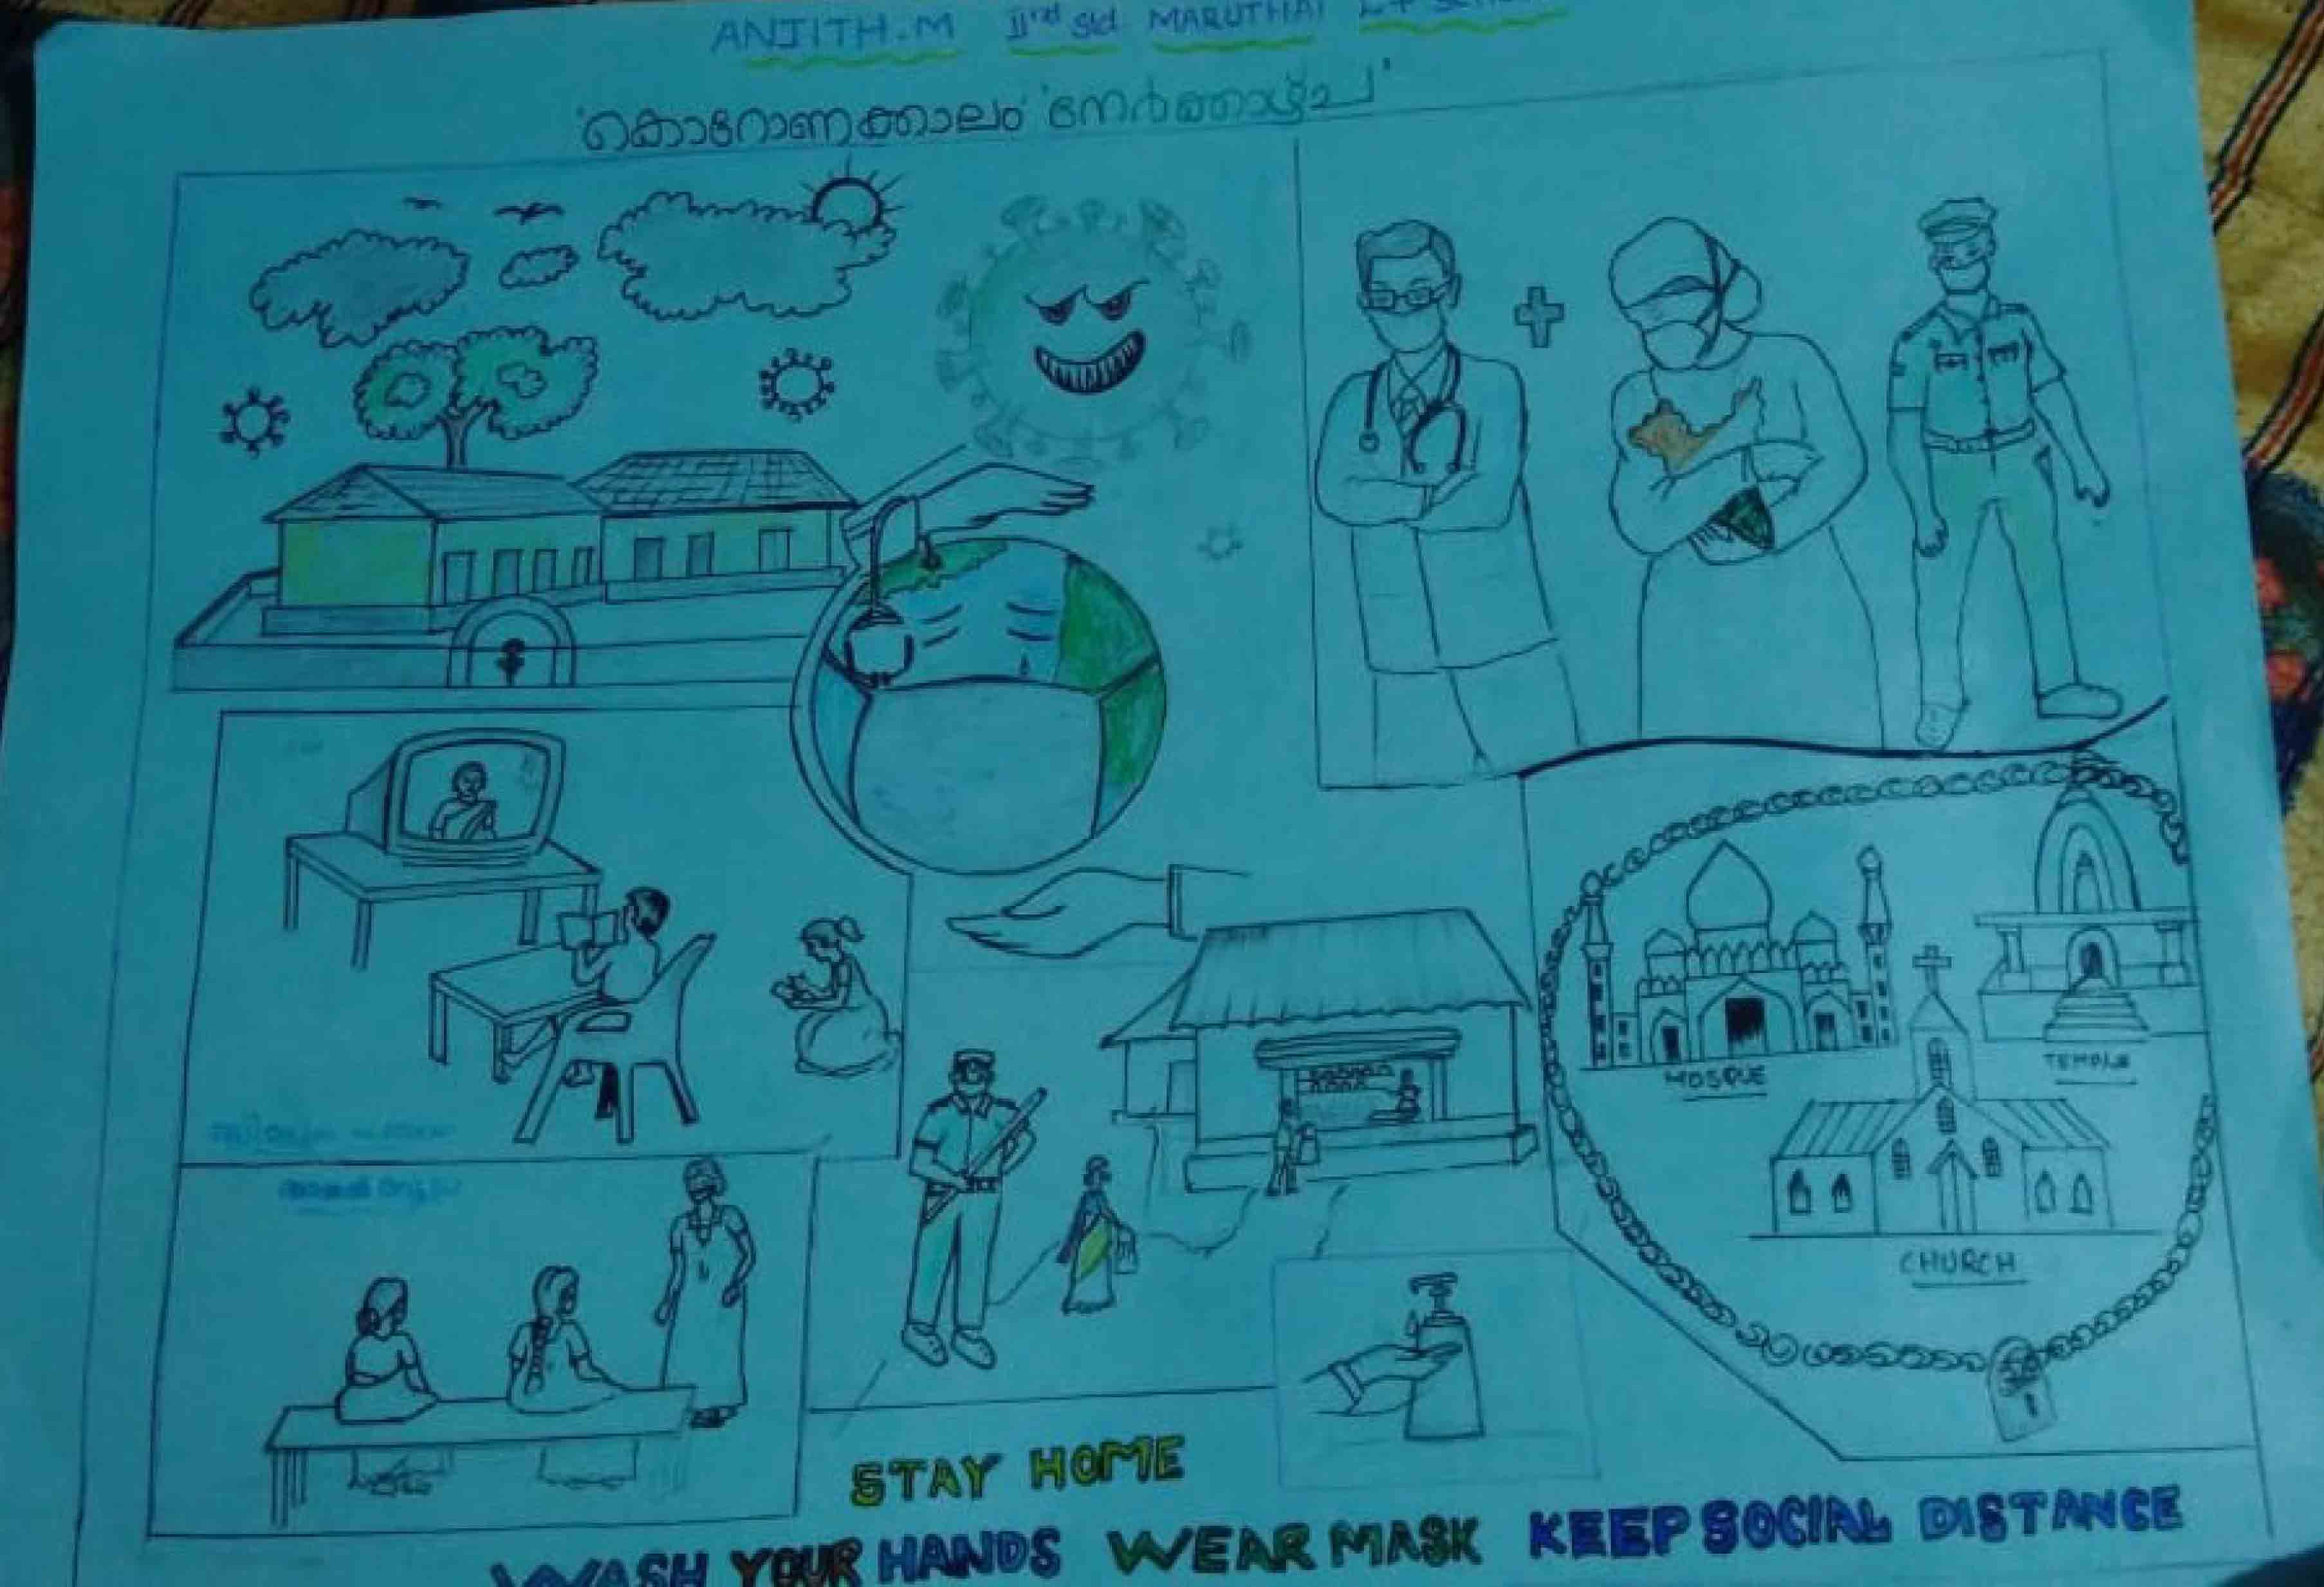 ANJITH.M IInd Std MARUTHAI
'കൊറോണക്കാലം' 'നേർക്കാഴ്ച'
MOSQUE
TEMPLE
CHURCH
STAY HOME
WASH YOUR HANDS WEAR MASK KEEP SOCIAL DISTANCE